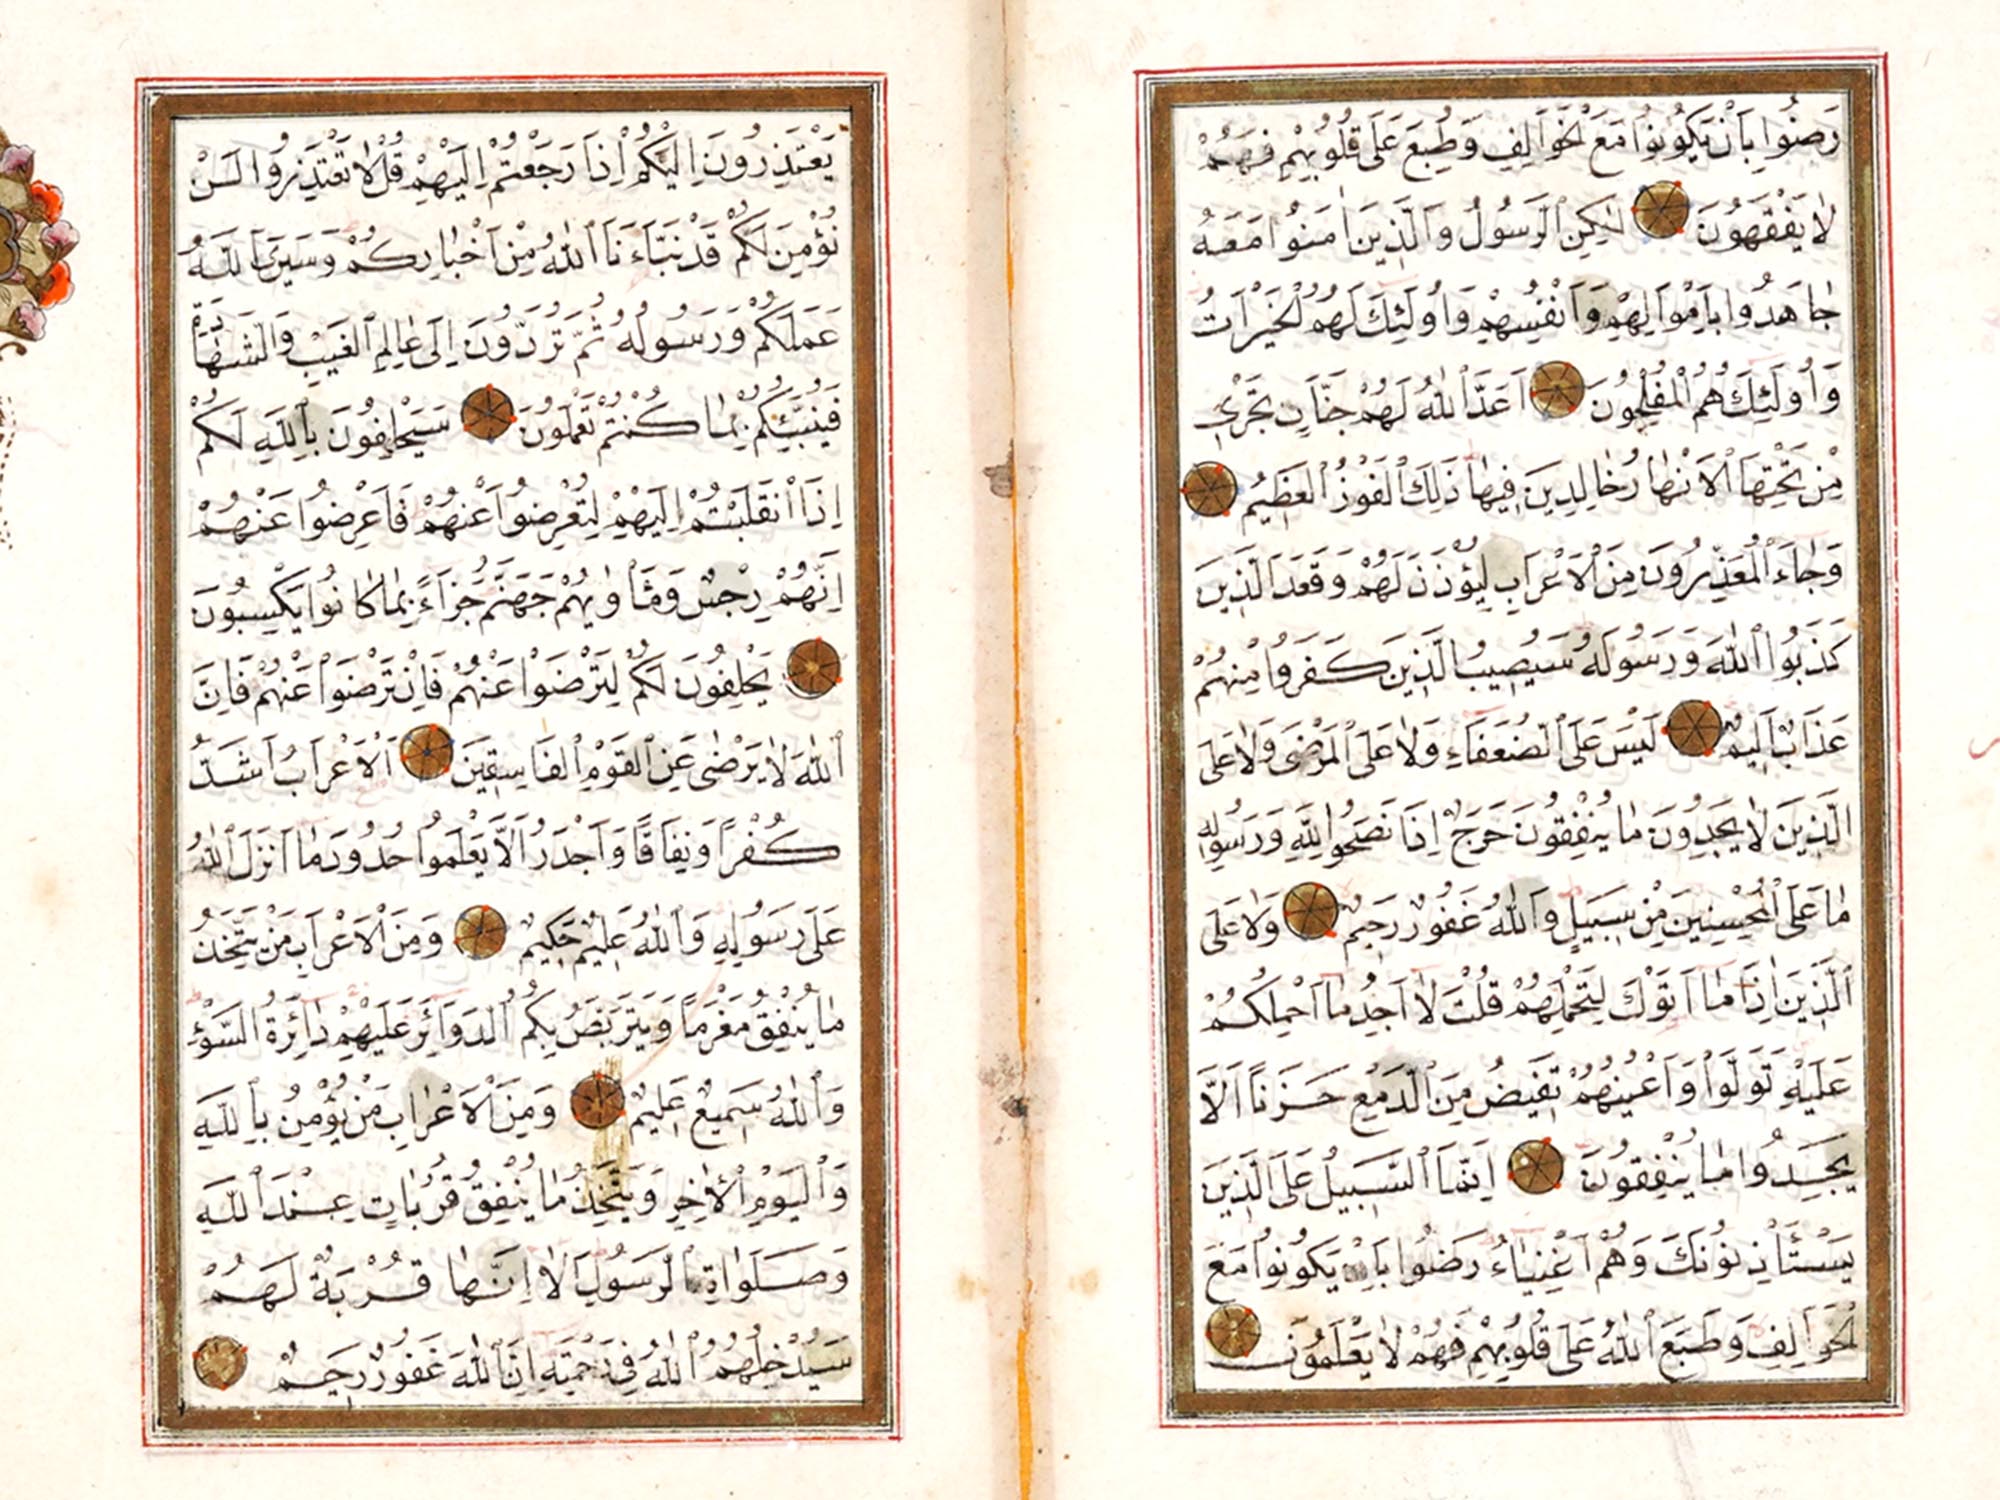 رَضُوا بِاَنْ يَكُونُوا مَعَ الْخَوَالِفِ وَطُبِعَ عَلٰى قُلُوبِهِمْ فَهُمْ
لَا يَفْقَهُونَ لٰكِنِ الرَّسُولُ وَالَّذِينَ اٰمَنُوا مَعَهُ
جَاهَدُوا بِاَمْوَالِهِمْ وَاَنْفُسِهِمْ وَاُولٰئِكَ لَهُمُ الْخَيْرَاتُ
وَاُولٰئِكَ هُمُ الْمُفْلِحُونَ اَعَدَّ اللّٰهُ لَهُمْ جَنَّاتٍ تَجْرِي
مِنْ تَحْتِهَا الْاَنْهَارُ خَالِدِينَ فِيهَا ذٰلِكَ الْفَوْزُ الْعَظِيمُ
وَجَاءَ الْمُعَذِّرُونَ مِنَ الْاَعْرَابِ لِيُؤْذَنَ لَهُمْ وَقَعَدَ الَّذِينَ
كَذَبُوا اللّٰهَ وَرَسُولَهُ سَيُصِيبُ الَّذِينَ كَفَرُوا مِنْهُمْ
عَذَابٌ اَلِيمٌ لَيْسَ عَلَى الضُّعَفَاءِ وَلَا عَلَى الْمَرْضٰى وَلَا عَلَى
الَّذِينَ لَا يَجِدُونَ مَا يُنْفِقُونَ حَرَجٌ اِذَا نَصَحُوا لِلّٰهِ وَرَسُولِهِ
مَا عَلَى الْمُحْسِنِينَ مِنْ سَبِيلٍ وَاللّٰهُ غَفُورٌ رَحِيمٌ وَلَا عَلَى
الَّذِينَ اِذَا مَا اَتَوْكَ لِتَحْمِلَهُمْ قُلْتَ لَا اَجِدُ مَا اَحْمِلُكُمْ
عَلَيْهِ تَوَلَّوْا وَاَعْيُنُهُمْ تَفِيضُ مِنَ الدَّمْعِ حَزَنًا اَلَّا
يَجِدُوا مَا يُنْفِقُونَ اِنَّمَا السَّبِيلُ عَلَى الَّذِينَ
يَسْتَأْذِنُونَكَ وَهُمْ اَغْنِيَاءُ رَضُوا بِاَنْ يَكُونُوا مَعَ
الْخَوَالِفِ وَطَبَعَ اللّٰهُ عَلٰى قُلُوبِهِمْ فَهُمْ لَا يَعْلَمُونَ
يَعْتَذِرُونَ اِلَيْكُمْ اِذَا رَجَعْتُمْ اِلَيْهِمْ قُلْ لَا تَعْتَذِرُوا لَنْ
نُؤْمِنَ لَكُمْ قَدْ نَبَّاَنَا اللّٰهُ مِنْ اَخْبَارِكُمْ وَسَيَرَى اللّٰهُ
عَمَلَكُمْ وَرَسُولُهُ ثُمَّ تُرَدُّونَ اِلٰى عَالِمِ الْغَيْبِ وَالشَّهَادَةِ
فَيُنَبِّئُكُمْ بِمَا كُنْتُمْ تَعْمَلُونَ سَيَحْلِفُونَ بِاللّٰهِ لَكُمْ
اِذَا انْقَلَبْتُمْ اِلَيْهِمْ لِتُعْرِضُوا عَنْهُمْ فَاَعْرِضُوا عَنْهُمْ
اِنَّهُمْ رِجْسٌ وَمَأْوٰيهُمْ جَهَنَّمُ جَزَاءً بِمَا كَانُوا يَكْسِبُونَ
يَحْلِفُونَ لَكُمْ لِتَرْضَوْا عَنْهُمْ فَاِنْ تَرْضَوْا عَنْهُمْ فَاِنَّ
اللّٰهَ لَا يَرْضٰى عَنِ الْقَوْمِ الْفَاسِقِينَ اَلْاَعْرَابُ اَشَدُّ
كُفْرًا وَنِفَاقًا وَاَجْدَرُ اَلَّا يَعْلَمُوا حُدُودَ مَا اَنْزَلَ اللّٰهُ
عَلٰى رَسُولِهِ وَاللّٰهُ عَلِيمٌ حَكِيمٌ وَمِنَ الْاَعْرَابِ مَنْ يَتَّخِذُ
مَا يُنْفِقُ مَغْرَمًا وَيَتَرَبَّصُ بِكُمُ الدَّوَائِرَ عَلَيْهِمْ دَائِرَةُ السَّوْءِ
وَاللّٰهُ سَمِيعٌ عَلِيمٌ وَمِنَ الْاَعْرَابِ مَنْ يُؤْمِنُ بِاللّٰهِ
وَالْيَوْمِ الْاٰخِرِ وَيَتَّخِذُ مَا يُنْفِقُ قُرُبَاتٍ عِنْدَ اللّٰهِ
وَصَلَوَاتِ الرَّسُولِ اَلَا اِنَّهَا قُرْبَةٌ لَهُمْ
سَيُدْخِلُهُمُ اللّٰهُ فِي رَحْمَتِهِ اِنَّ اللّٰهَ غَفُورٌ رَحِيمٌ